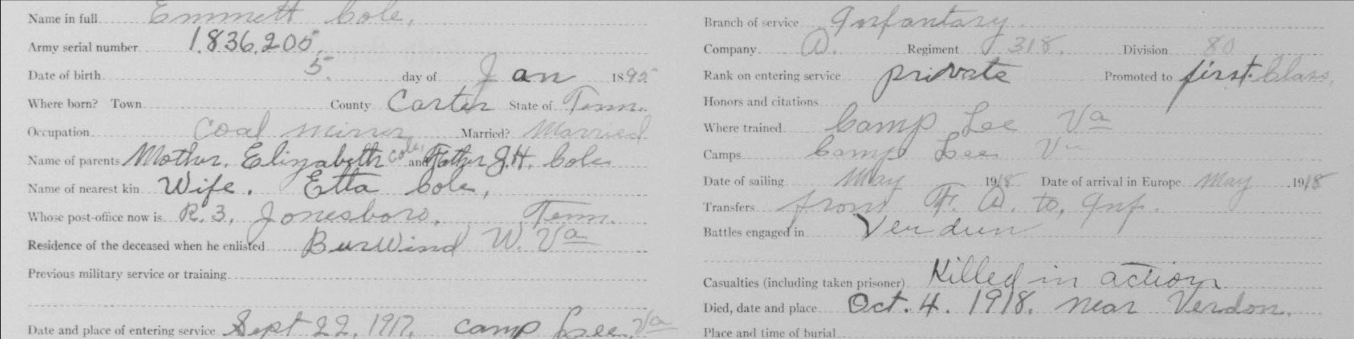 Name in full Emmett Cole,
Army serial number 1,836,205
Date of birth 5. day of Jan 1895
Where born? Town County Carter State of Tenn.
Occupation Coal minor Married? Married
Name of parents Mother, Elizabeth Cole, and Father J.H. Cole
Name of nearest kin Wife. Etta Cole,
Whose post-office now is R. 3, Jonesboro, Tenn.
Residence of the deceased when he enlisted BurWind W. Va
Previous military service or training
Date and place of entering service Sept 22, 1917, Camp Lee, Va
Branch of service Infantary.
Company A. Regiment 318. Division 80
Rank on entering service private Promoted to first class,
Honors and citations
Where trained Camp Lee Va
Camps Camp Lee Va
Date of sailing May 1918 Date of arrival in Europe May , 1918
Transfers from F. A. to, Inf.
Battles engaged in Verdun
Casualties (including taken prisoner) Killed in action
Died, date and place Oct. 4. 1918. near Verdon.
Place and time of burial